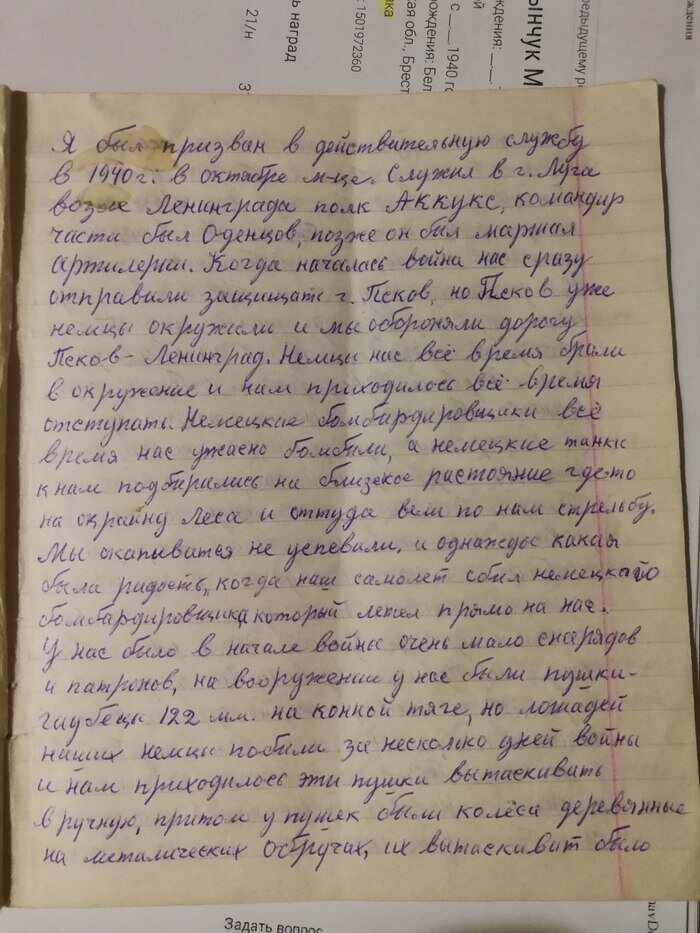 редыдущему ре
ождения
ынчук М
рождения: Бел
кая обл., Брест
с __.__.1940 го
: 1501972360
вка
ь наград
21/н
Я был призван в действительную службу
в 1940г. в октябре м-це. Служил в г. Луга
возле Ленинграда полк АККУКС, командир
части был Оденцов, позже он был маршал
артилерии. Когда началась война нас сразу
отправили защищать г. Псков, но Псков уже
немцы окружили и мы обороняли дорогу
Псков - Ленинград. Немцы нас всё время брали
в окружение и нам приходилось всё время
отступать. Немецкие бомбардировщики всё
время нас ужасно бомбили, а немецкие танки
к нам подбирались на близское растояние где-то
на окраину леса и оттуда вели по нам стрельбу.
Мы окапыватся не успевали, и однажды какая
была радость, когда наш самолет сбил немецкого
бомбардировщика который летел прямо на нас.
У нас было в начале войны очень мало снарядов
и патронов, на вооружении у нас были пушки-
гаубецы 122 мм. на конной тяге, но лошадей
наших немцы побили за несколько дней войны
и нам приходилось эти пушки вытаскивать
в ручную, притом у пушек были колёса деревянные
на металических обручах, их вытаскиват было
Задать вопрос